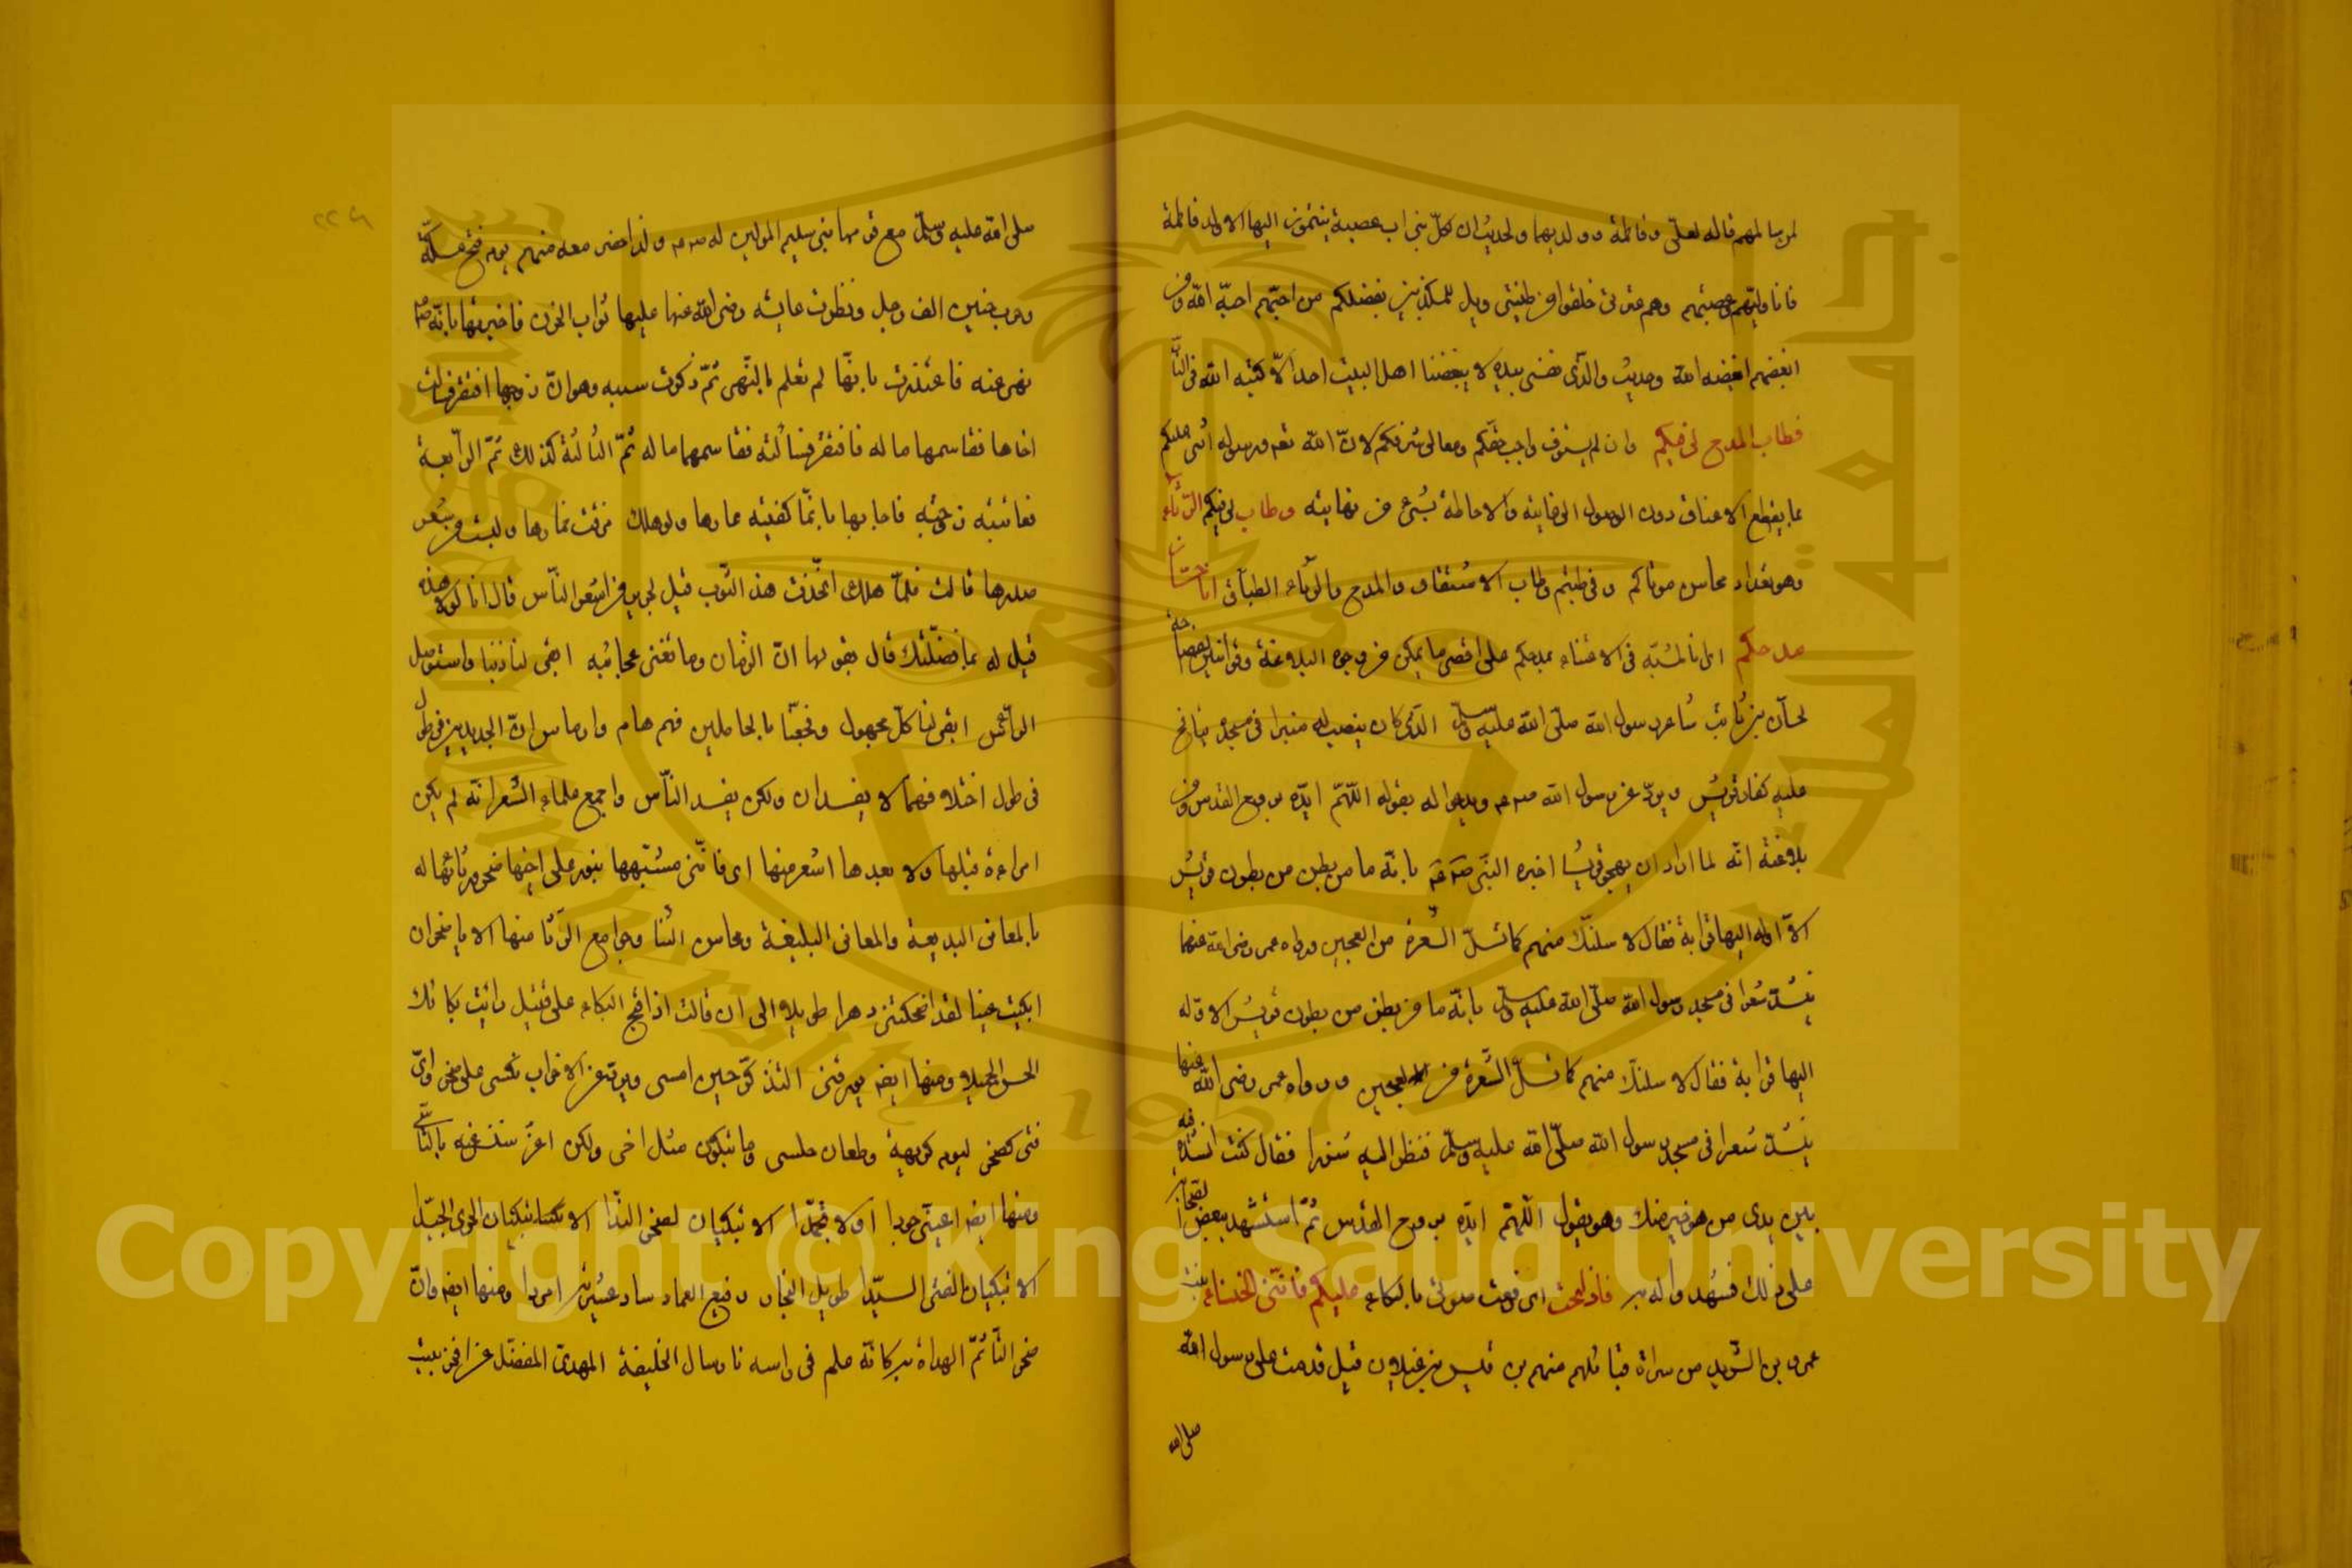 لمن سالمهم قاله لعلى وفاطمة وولديهما ولحديث ان لكل بنى اب عصبة ينتمون اليها الا ولد فاطمة
فانا وليهم وعصبتهم وهم عترتى خلقوا من طينتى ويل للمكذبين بفضلكم من احبهم احبه الله ومن
ابغضهم ابغضه الله وحديث والذى نفسى بيده لا يبغضنا اهل البيت احد الا كبه الله فى النار
فطاب المدح لى فيكم وان لم يستوف واجب حقكم ومعالى شرفكم لان الله تعم ورسوله اثنى عليكم
بما يقطع الاعناق دون الوصول الى غايته والاحاطة بشىء من نهايته وطاب لى فيكم الرثاء
وهو تعداد محاسن موتاكم وفى طبتم وطاب الاشتقاق والمدح والرثاء الطباق انا حسان
مدحكم اى انا المشبه فى الاعتناء بمدحكم على اقصى ما يمكن من وجوه البلاغة
لحسان بن ثابت شاعر رسول الله صلى الله عليه وسلم الذى كان ينصب له منبرا فى مسجده ينافح
عليه كفار قريش ويرد عن رسول الله صدعم ويدعو له بقوله اللهم ايده بروح القدس ومن
بلاغته انه لما اراد ان يهجو قريشا اخبره النبى صدعم بانه ما من بطن من بطون قريش
الا وله اليها قرابة فقال لاسلنك منهم كما تسل الشعرة من العجين ورواه عمر رضى الله عنهما
ينشد شعرا فى مسجد رسول الله صلى الله عليه وسلم بانه ما من بطن من بطون قريش الا وله
اليها قرابة فقال لاسلنك منهم كما تسل الشعرة من العجين ورواه عمر رضى الله عنهما
ينشد شعرا فى مسجد رسول الله صلى الله عليه وسلم فنظر اليه شزرا فقال كنت انشد فيه
بين يدى من هو خير منك وهو يقول اللهم ايده بروح القدس ثم استشهد ببعض الصحابة
على ذلك فشهد واله به فاذا نحت اى رفعت صوتى بالبكاء عليكم فاننى الخنساء بنت
عمرو بن الشريد من سراة قبائلهم منهم بن قيس بن غيلان قيل قدمت على رسول الله
صلى الله
صلى الله عليه وسلم مع قومها بنى سليم المولين له صدعم ولذا حضر معه منهم يوم فتح مكة
وحرب حنين الف رجل ونظرت عايشه رضى الله عنها عليها ثواب الحزن فاخبرتها بانه صدعم
نهى عنه فاعتذرت بانها لم تعلم بالنهى ثم ذكرت سببه وهو ان زوجها افتقر فسالت
اخاها فقاسمها ماله فافتقر فسالته فقاسمهما ماله ثم الثالثة كذلك ثم الرابعة
فعاتبته زوجته فاجابها بانها كفيته عارها ولو هلك مزقت خمارها ولبست من شعر
صدارها قالت فلما هلك اتخذت هذا الثوب قيل لجرير من اشعر الناس قال انا لولا هذه
قيل له بما فضلتك قال بقولها ان الزمان وما تفنى عجائبه ابقى لنا ذنبا واستوصل
الراس ابقى لنا كل مجهول وفجعنا بالحاملين فهم هام وارماس ان الجديدين فى طول
فى طول اختلافهما لا يفسدان ولكن يفسد الناس واجمع علماء الشعر انه لم يكن
امراءة قبلها ولا بعدها اشعر منها اى فاننى مشبهها بنور على اخيها صخر ورثائها له
بالمعانى البديعة والمعانى البليغة ومحاسن الثنا وجوامع الرثا منها الا يا صخر ان
ابكيت عينا لقد اضحكتنى دهرا طويلا الى ان قالت اذا قبح البكاء على قتيل رايت بكائك
الحسن الجميلا ومنها ايضه يورقنى التذكر حين امسى ويردعنى الاحزاب نكسى على صخر واى
فتى كصخر ليوم كريهة وطعان حلسى وما تبكون مثل اخى ولكن اعزى النفس عنه بالتاسى
ومنها ايضه اعينى جودا ولا تجمدا الا تبكيان لصخر الندا الا تبكيان الجرى الجميل
الا تبكيان الفتى السيدا طويل النجاد رفيع العماد ساد عشيرته امردا ومنها ايضه وان
صخر التاتم الهداة به كانه علم فى راسه نار وسال الخليفة المهدى المفضل عن افخر بيت